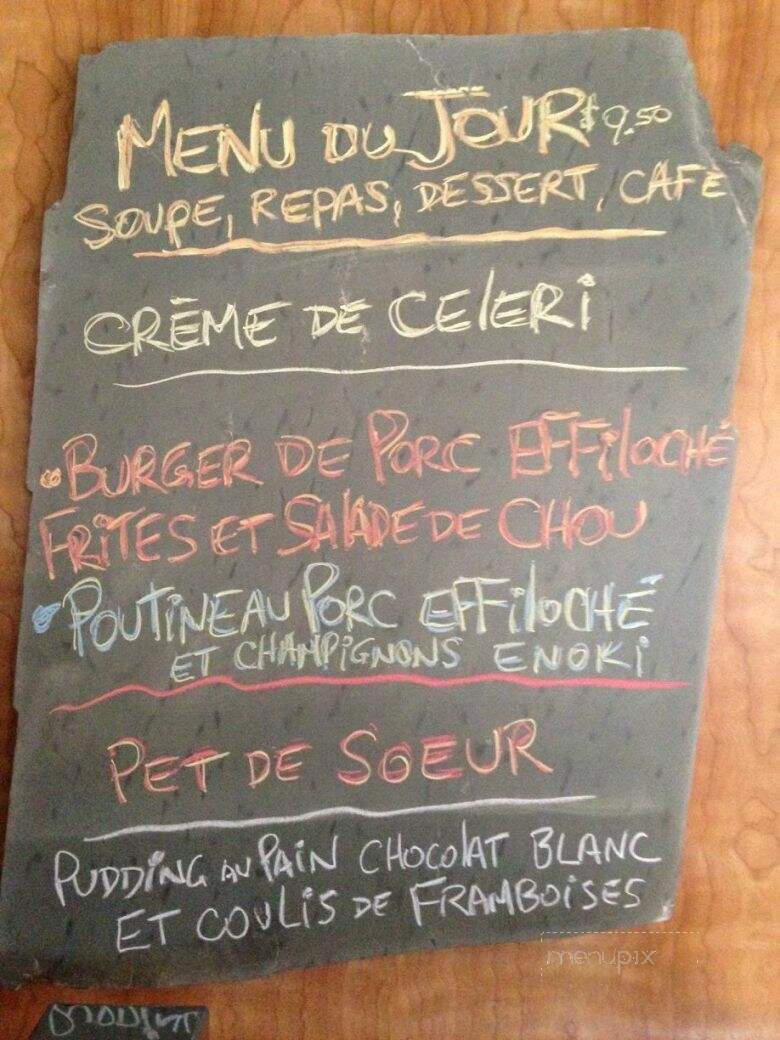 MENU DU JOUR $9.50
SOUPE, REPAS, DESSERT, CAFE
CRÈME DE CELERI
• BURGER DE PORC EFFILOCHÉ
FRITES ET SALADE DE CHOU
• POUTINE AU PORC EFFILOCHÉ
ET CHAMPIGNONS ENOKI
PET DE SOEUR
PUDDING AU PAIN CHOCOLAT BLANC
ET COULIS DE FRAMBOISES
menupix